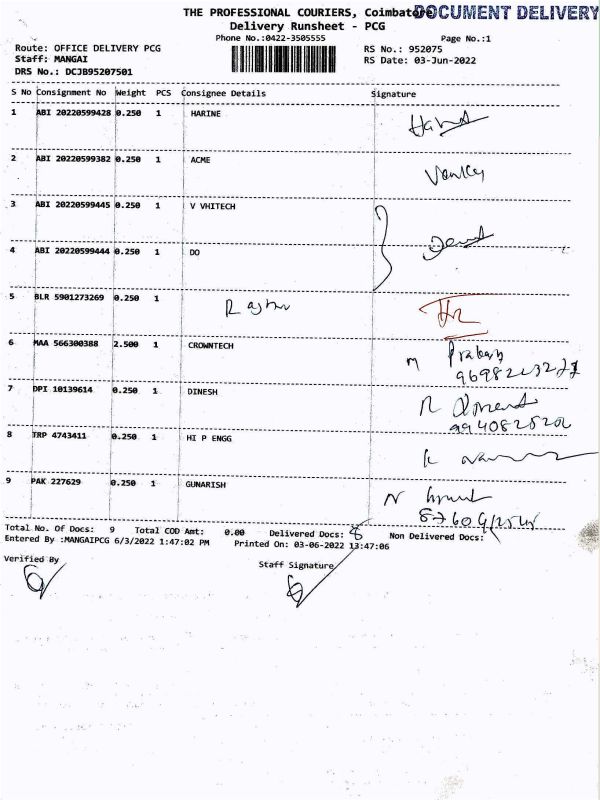 THE PROFESSIONAL COURIERS, Coimbatore
DOCUMENT DELIVERY
Delivery Runsheet - PCG
Phone No.:0422-3505555
Page No.:1
Route: OFFICE DELIVERY PCG
RS No.: 952075
Staff: MANGAI
RS Date: 03-Jun-2022
DRS No.: DCJB95207501
S No Consignment No Weight PCS Consignee Details Signature
1 ABI 20220599428 0.250 1 HARINE
2 ABI 20220599382 0.250 1 ACME
Venkey
3 ABI 20220599445 0.250 1 V VHITECH
4 ABI 20220599444 0.250 1 DO
5 BLR 5901273269 0.250 1
6 MAA 566300388 2.500 1 CROWNTECH
M Prakash
7 DPI 10139614 0.250 1 DINESH
9940825202
8 TRP 4743411 0.250 1 HI P ENGG
9 PAK 227629 0.250 1 GUNARISH
Total No. Of Docs: 9 Total COD Amt: 0.00 Delivered Docs: 8 Non Delivered Docs:
Entered By :MANGAIPCG 6/3/2022 1:47:02 PM Printed On: 03-06-2022 13:47:06
Verified By
Staff Signature